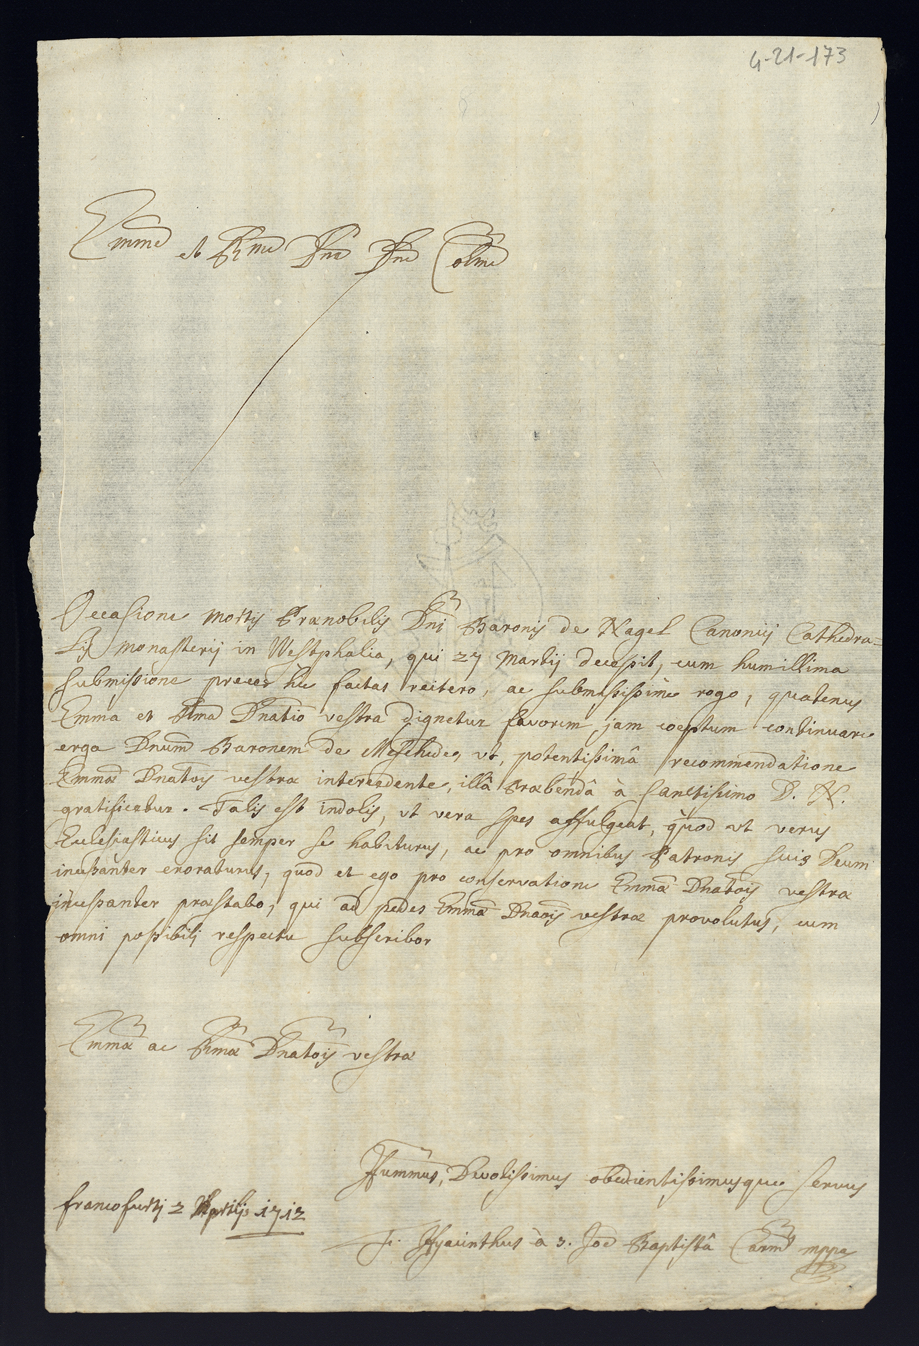 4-21-173
Emme et Rme Dne Dne Colme
Occasione mortis Prænobilis Dni Baronis de Nagel Canonici Cathedra-
lis monasterij in Westphalia, qui 27 Martij decessit, cum humillima
submissione preces hîc factas reitero, ac submississimè rogo, quatenus
Emma et Rma Dnatio vestra dignetur favorem jam coeptum continuare
erga Dnum Baronem de Meschede, ut, potentissimâ recommendatione
Emmæ Dnatois vestræ intercedente, illâ Præbendâ à Sanctissimo D. N.
gratificetur. Talis est indolis, ut vera spes affulgeat, quod ut verus
Ecclesiasticus sit semper se habiturus, ac pro omnibus Patronis suis Deum
incessanter exoraturus, quod et ego pro conservatione Emmæ Dnatois vestræ
incessanter præstabo, qui ad pedes Emmæ Dnaois vestræ provolutus, cum
omni possibili respectu subscribor
Emmæ ac Rmæ Dnatois vestræ
Hummus, Devotissimus obedientissimusque servus
francofurti 2 Aprilis 1712
F. Hyacinthus à S. Joe Baptistâ Carm mppa